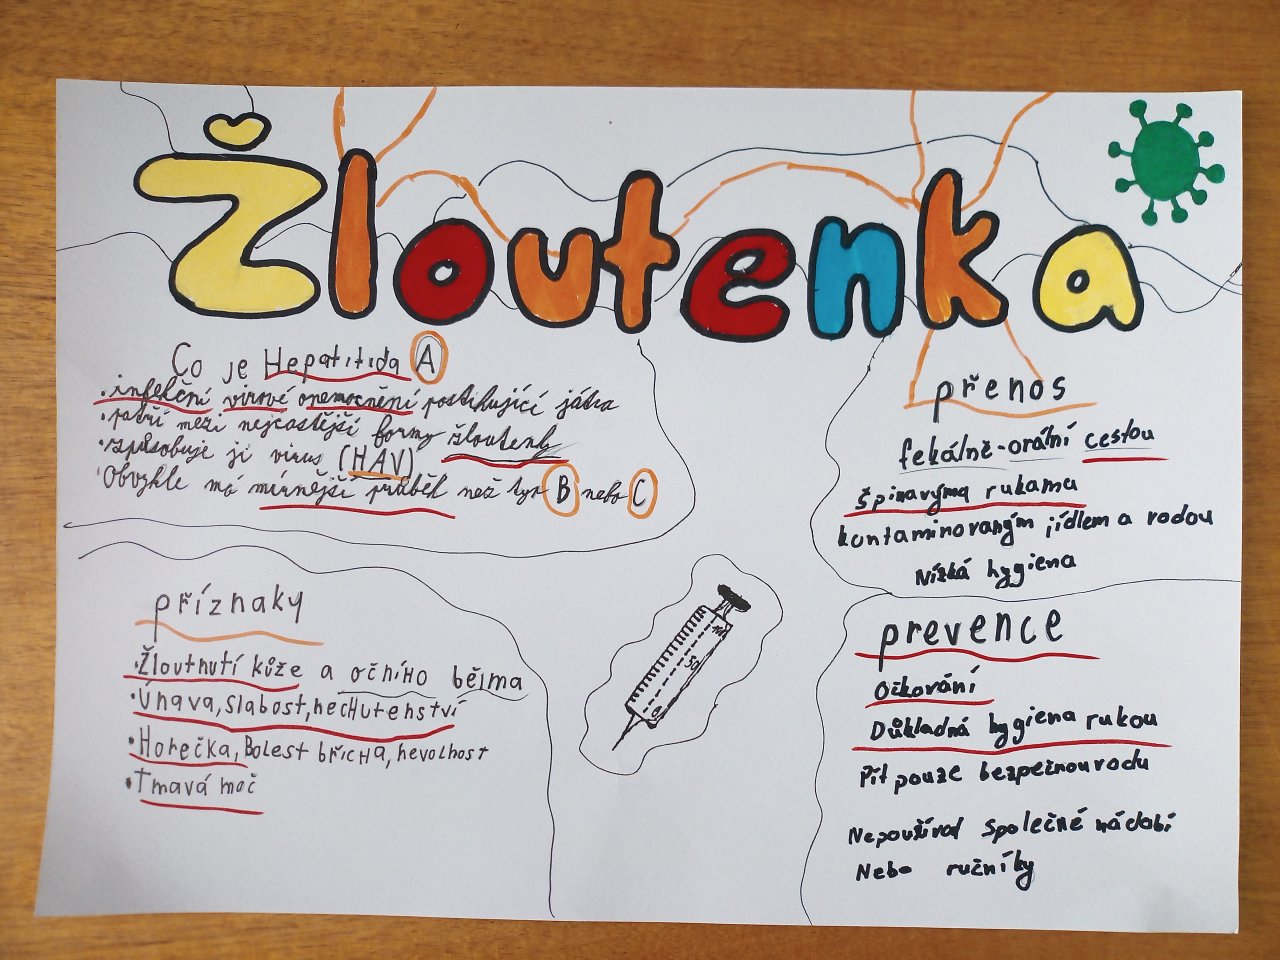 Žloutenka
Co je Hepatitida A
• infekční virové onemocnění postihující játra
• patří mezi nejčastější formy žloutenky
• způsobuje ji virus (HAV)
• Obvykle má mírnější průběh než typ B nebo C
příznaky
• Žloutnutí kůže a očního bělma
• Únava, slabost, nechutenství
• Horečka, Bolest břicha, nevolnost
• Tmavá moč
50
0
přenos
fekálně-orální cestou
špinavýma rukama
kontaminovaným jídlem a vodou
Nízká hygiena
prevence
Očkování
Důkladná hygiena rukou
Pít pouze bezpečnou vodu
Nepoužívat společné nádobí
Nebo ručníky